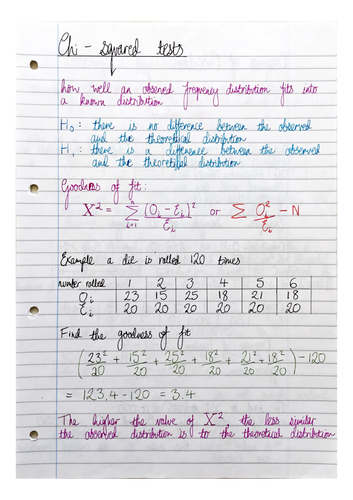 Chi-squared tests
how well an observed frequency distribution fits into
a known distribution
H₀: there is no difference between the observed
and the theoretical distribution
H₁: there is a difference between the observed
and the theoretical distribution
Goodness of fit:
X² = Σⁿᵢ₌₁ (Oᵢ - Eᵢ)² / Eᵢ or Σ Oᵢ² / Eᵢ - N
Example a die is rolled 120 times
number rolled 1 2 3 4 5 6
Oᵢ 23 15 25 18 21 18
Eᵢ 20 20 20 20 20 20
Find the goodness of fit
(23²/20 + 15²/20 + 25²/20 + 18²/20 + 21²/20 + 18²/20) - 120
= 123.4 - 120 = 3.4
The higher the value of X² the less similar
the observed distribution is to the theoretical distribution